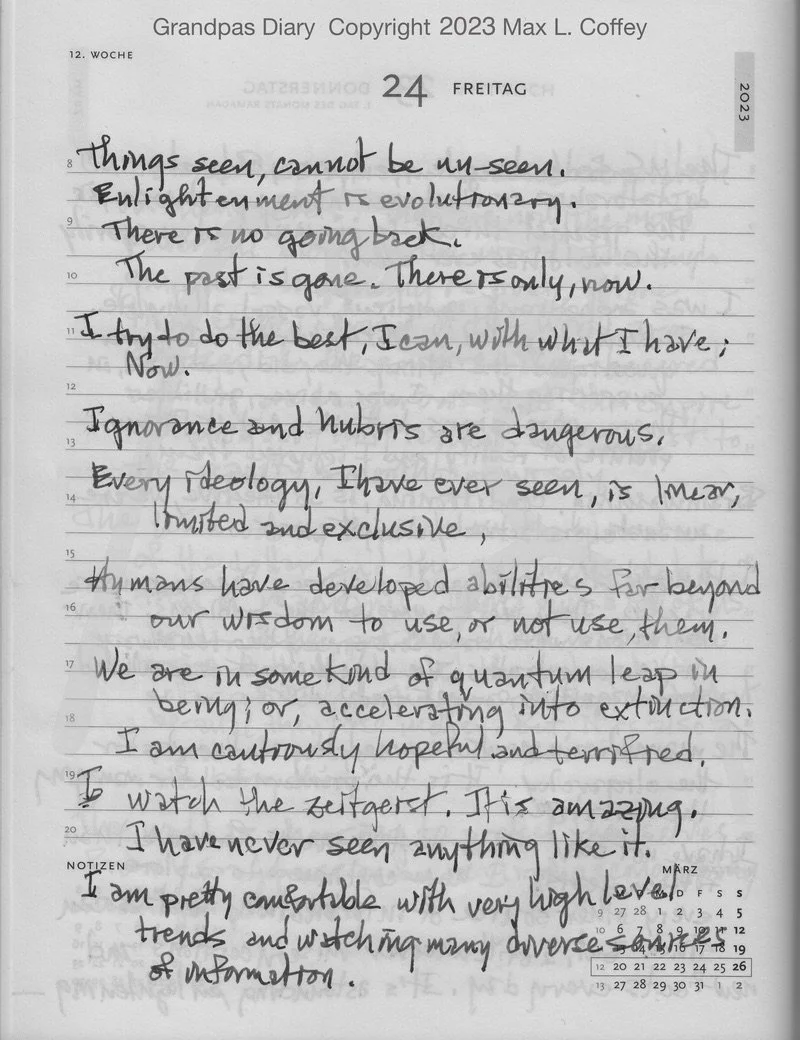 Grandpas Diary Copyright 2023 Max L. Coffey
12. WOCHE
24 FREITAG
2023
8 Things seen, cannot be un-seen.
Enlightenment is evolutionary.
9 There is no going back.
10 The past is gone. There is only, now.
11 I try to do the best, I can, with what I have;
Now.
12
Ignorance and hubris are dangerous.
13
Every ideology, I have ever seen, is linear,
14
limited and exclusive,
15
Humans have developed abilities far beyond
16
our wisdom to use, or not use, them.
17 We are in some kind of quantum leap in
being; or, accelerating into extinction.
18
I am cautiously hopeful and terrified.
19
I watch the zeitgeist. It is amazing.
20
I have never seen anything like it.
NOTIZEN
MÄRZ
I am pretty comfortable with very high level
D F S S
9 27 28 1 2 3 4 5
trends and watching many diverse sources
10 6 7 8 9 10 11 12
13 14 15 16 17 18 19
of information.
12 20 21 22 23 24 25 26
13 27 28 29 30 31 1 2